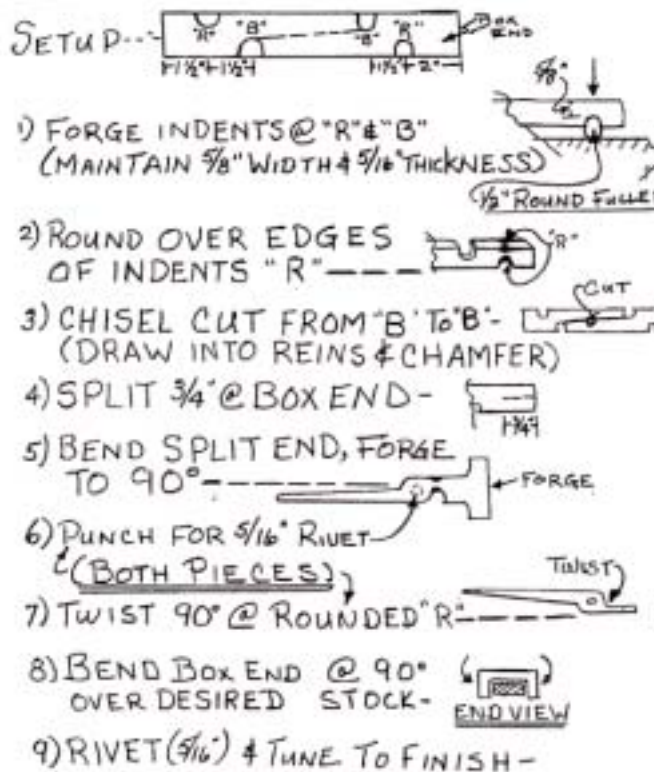 SETUP---
"R" "B" "B" "R"
BOX END
1½" 1½" 1½" 2"
1) FORGE INDENTS @ "R" & "B"
(MAINTAIN 5/8" WIDTH & 5/16" THICKNESS)
5/8"
½" ROUND FULLE
2) ROUND OVER EDGES
OF INDENTS "R" ----
"R"
3) CHISEL CUT FROM "B" TO "B" -
(DRAW INTO REINS & CHAMFER)
CUT
4) SPLIT 3/4" @ BOX END -
3/4"
5) BEND SPLIT END, FORGE
TO 90° -------
FORGE
6) PUNCH FOR 5/16" RIVET
(BOTH PIECES)
7) TWIST 90° @ ROUNDED "R" ----
TWIST
8) BEND BOX END @ 90°
OVER DESIRED STOCK -
END VIEW
9) RIVET (5/16") & TUNE TO FINISH -